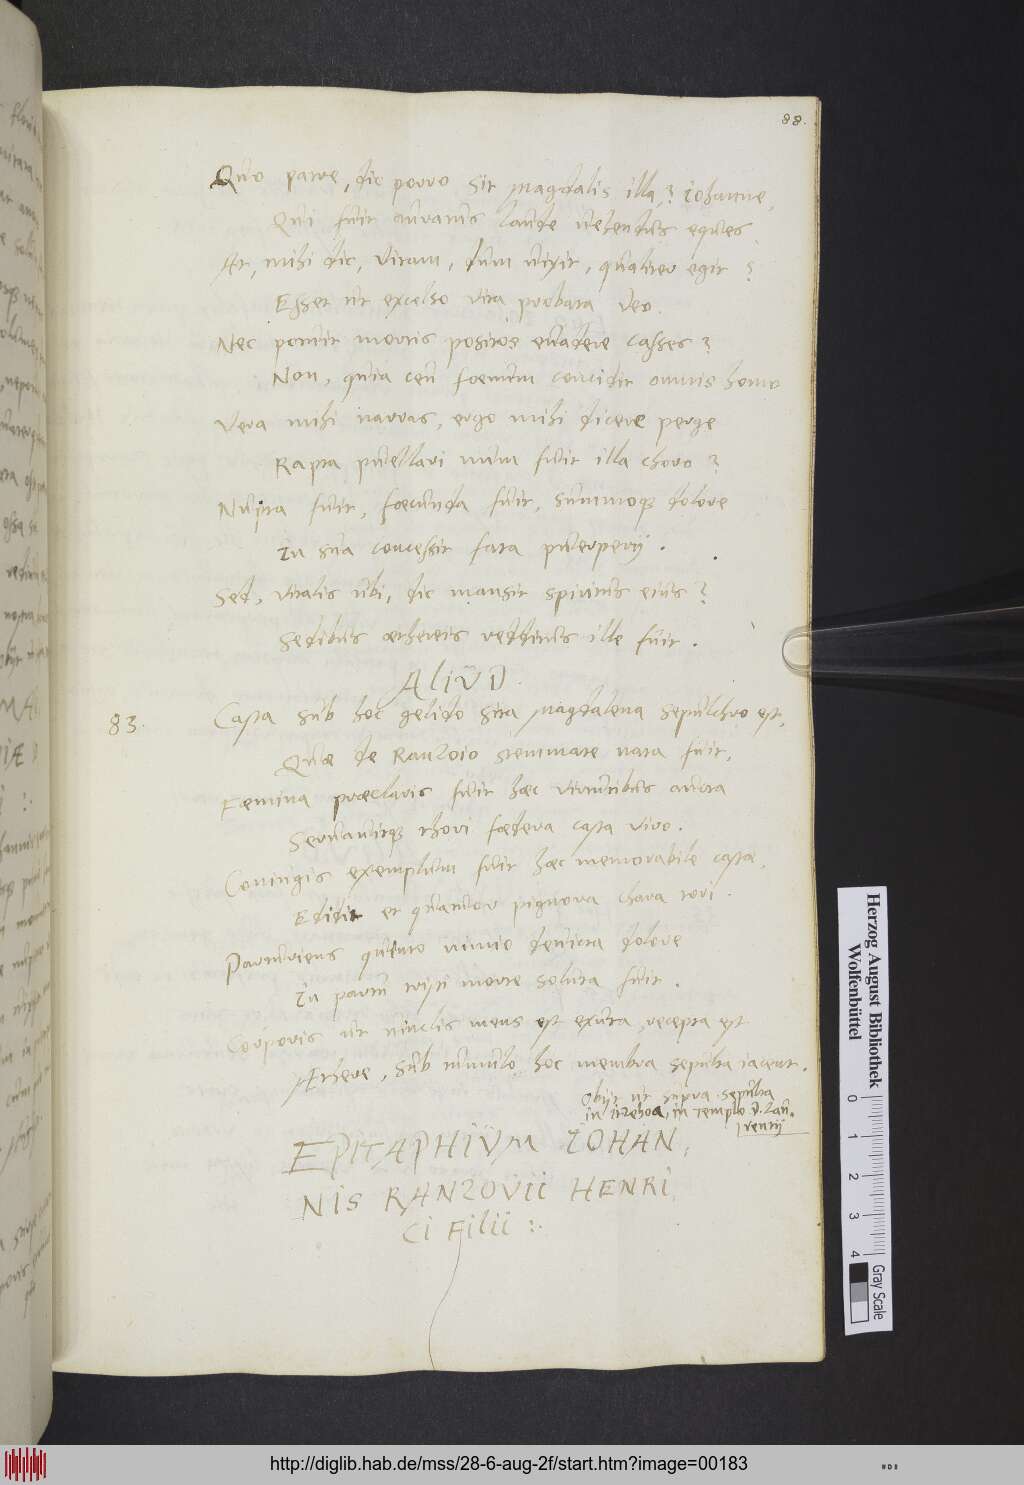 88.
Quo patre, dic porro sit Magdalis illa? Iohanne,
Qui fuit auratus laude uehendus eques.
At, mihi dic, vitam, dum uixit, qualiter egit?
Esset ut excelso vita probata Deo.
Nec potuit mortis positos euadere casses?
Non, quia ceu foenum concidit omnis homo
Vera mihi narras, ergo mihi dicere perge
Rapta puellari num fuit illa choro?
Nupta fuit, foecunda fuit, summoq; dolore
In sua concessit fata puerperij.
Sed, vitalis ubi, dic mansit spiritus eius?
Sedibus æthereis redditus ille fuit.
ALIUD.
83.
Casta sub hoc gelido sita Magdalena sepulchro est,
Quæ de Ranzoio stemmate nata fuit,
Fæmina præclaris fuit hæc virtutibus aucta
Seruauitq; thori fædera casta viro.
Coniugis exemplum fuit hæc memorabile castæ,
Edidit et quatuor pignora chara tori.
Parturiens quinto nimio deuicta dolore
In partu tristi morte soluta fuit.
Corporis ut uinclis mens est exuta, recepta est
Æthere, sub tumulo hoc membra sepulta iacent.
Obijt ut supra sepulta
in Itzehoa, in templo D. Lau-
rentij
EPITAPHIUM IOHAN,
NIS RANZOVII HENRI,
CI FILII :.
Herzog August Bibliothek
Wolfenbüttel
0 1 2 3 4
Gray Scale
http://diglib.hab.de/mss/28-6-aug-2f/start.htm?image=00183